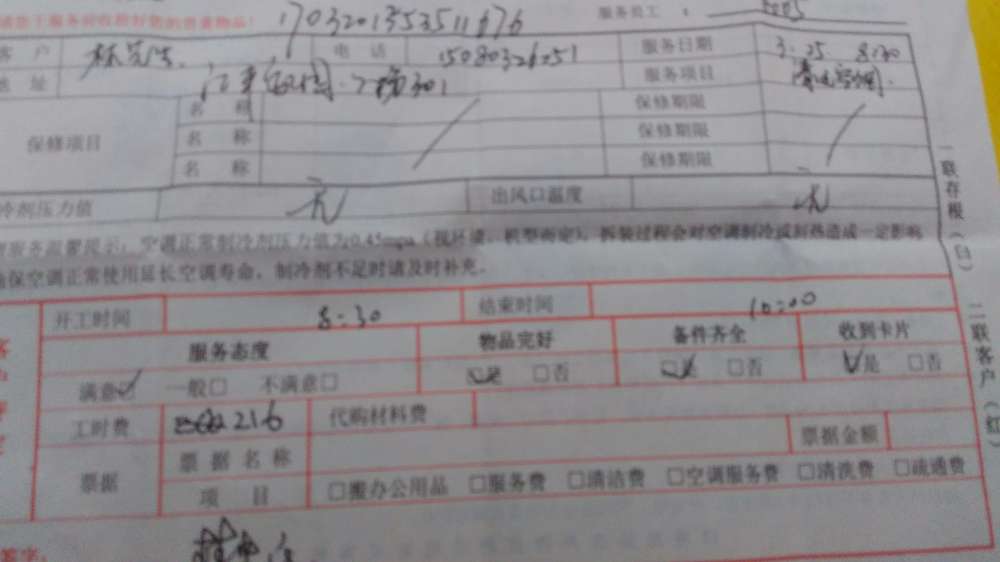 请您于服务前收拾好您的贵重物品! 1703201353511676 服务员工:
客 户 电 话 15080326251 服务日期 3.25 8:30
地 址 301 服务项目
保修项目 名 称 保修期限
名 称 保修期限
名 称 保修期限
冷剂压力值 无 出风口温度 无
服务温馨提示:空调正常制冷剂压力值为0.45mpa(视环境、机型而定),拆装过程会对空调制冷或制热造成一定影响
确保空调正常使用延长空调寿命,制冷剂不足时请及时补充。
开工时间 8:30 结束时间 10:00
服务态度 物品完好 备件齐全 收到卡片
满意☑ 一般□ 不满意□ ☑是 □否 ☑是 □否 ☑是 □否
工时费 216 代购材料费
票据 票据名称 票据金额
项 目 □搬办公用品 □服务费 □清洁费 □空调服务费 □清洗费 □疏通费
签字:
一联存根(白) 二联客户(红)